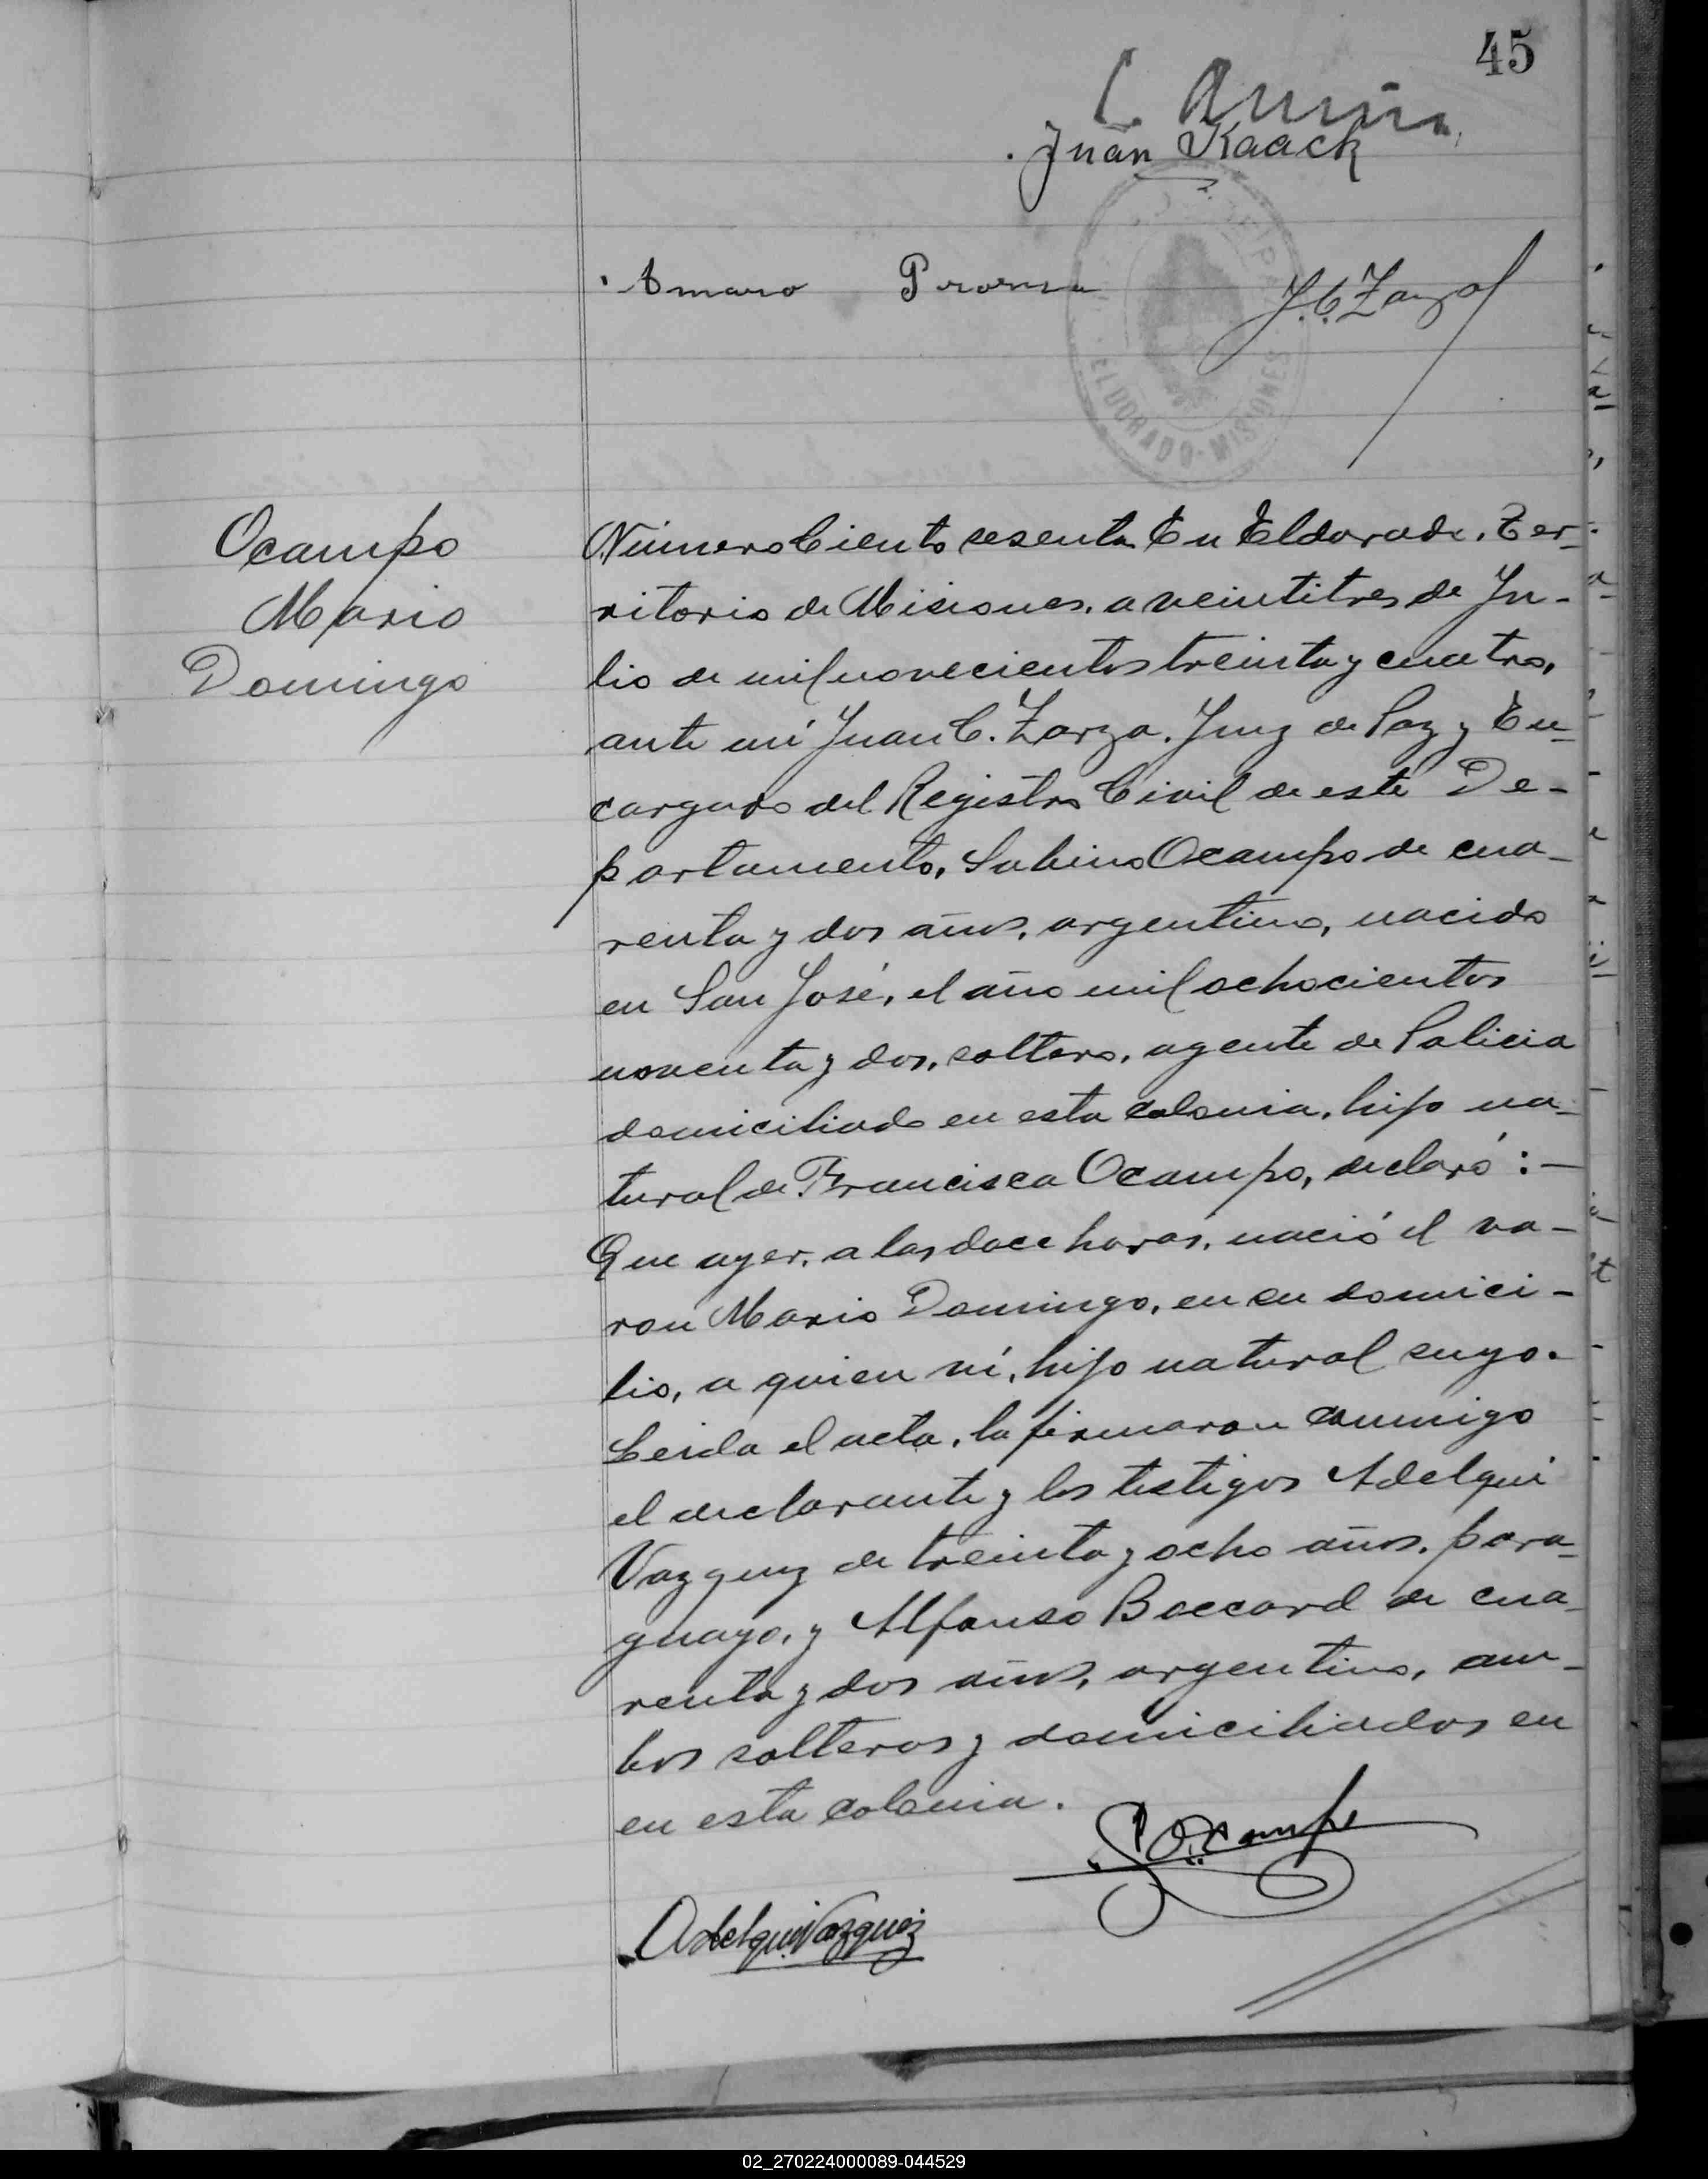 45
Juan Kaack
Amaro
J.C. Zarza
ELDORADO - MISIONES
Ocampo
Mario
Domingo
Número Ciento sesenta En Eldorado, Ter-
ritorio de Misiones, a veintitres de Ju-
lio de mil novecientos treinta y cuatro,
ante mí Juan C. Zarza, Juez de Paz y En-
cargado del Registro Civil de este De-
partamento, Sabino Ocampo de cua-
renta y dos años, argentino, nacido
en San José, el año mil ochocientos
noventa y dos, soltero, agente de Policia
domiciliado en esta colonia, hijo na-
tural de Francisca Ocampo, declaró: -
Que ayer, a las doce horas, nació el va-
ron Mario Domingo, en su domici-
lio, a quien ví, hijo natural suyo.
Leida el acta, la firmaron conmigo
el declarante y los testigos Adelqui
Vazquez de treinta y ocho años, para-
guayo, y Alfonso Boccard de cua-
renta y dos años, argentino, am-
bos solteros y domiciliados en
en esta colonia.
S. Ocampo
Adelqui Vazquez
02_270224000089-044529